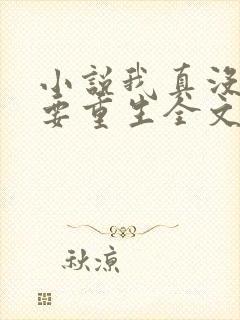 小说我真没
要重生全文
秋凉